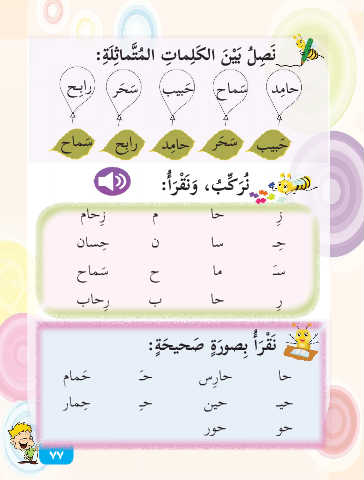 نَصِلُ بَيْنَ الكَلِماتِ المُتَماثِلَةِ:
حامِد سَماح حَبيب سَحَر رابِح
حَبيب سَحَر حامِد رابِح سَماح
نُرَكِّبُ، وَنَقْرَأُ:
زِ حا م زِحام
حِـ سا ن حِسان
سَـ ما ح سَماح
رِ حا ب رِحاب
نَقْرَأُ بِصورَةٍ صَحيحَةٍ:
حا حارِس حَـ حَمام
حيـ حين حِـ حِمار
حو حور
٧٧